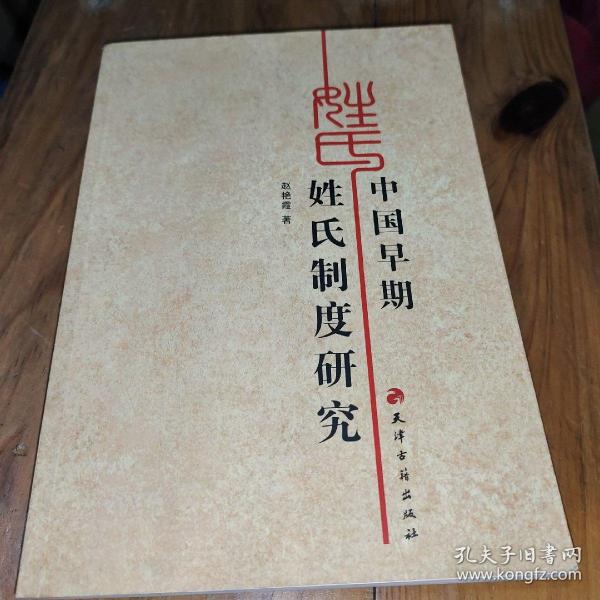 姓氏
中国早期
姓氏制度研究
赵艳霞 著
天津古籍出版社
孔夫子旧书网
www.kongfz.com